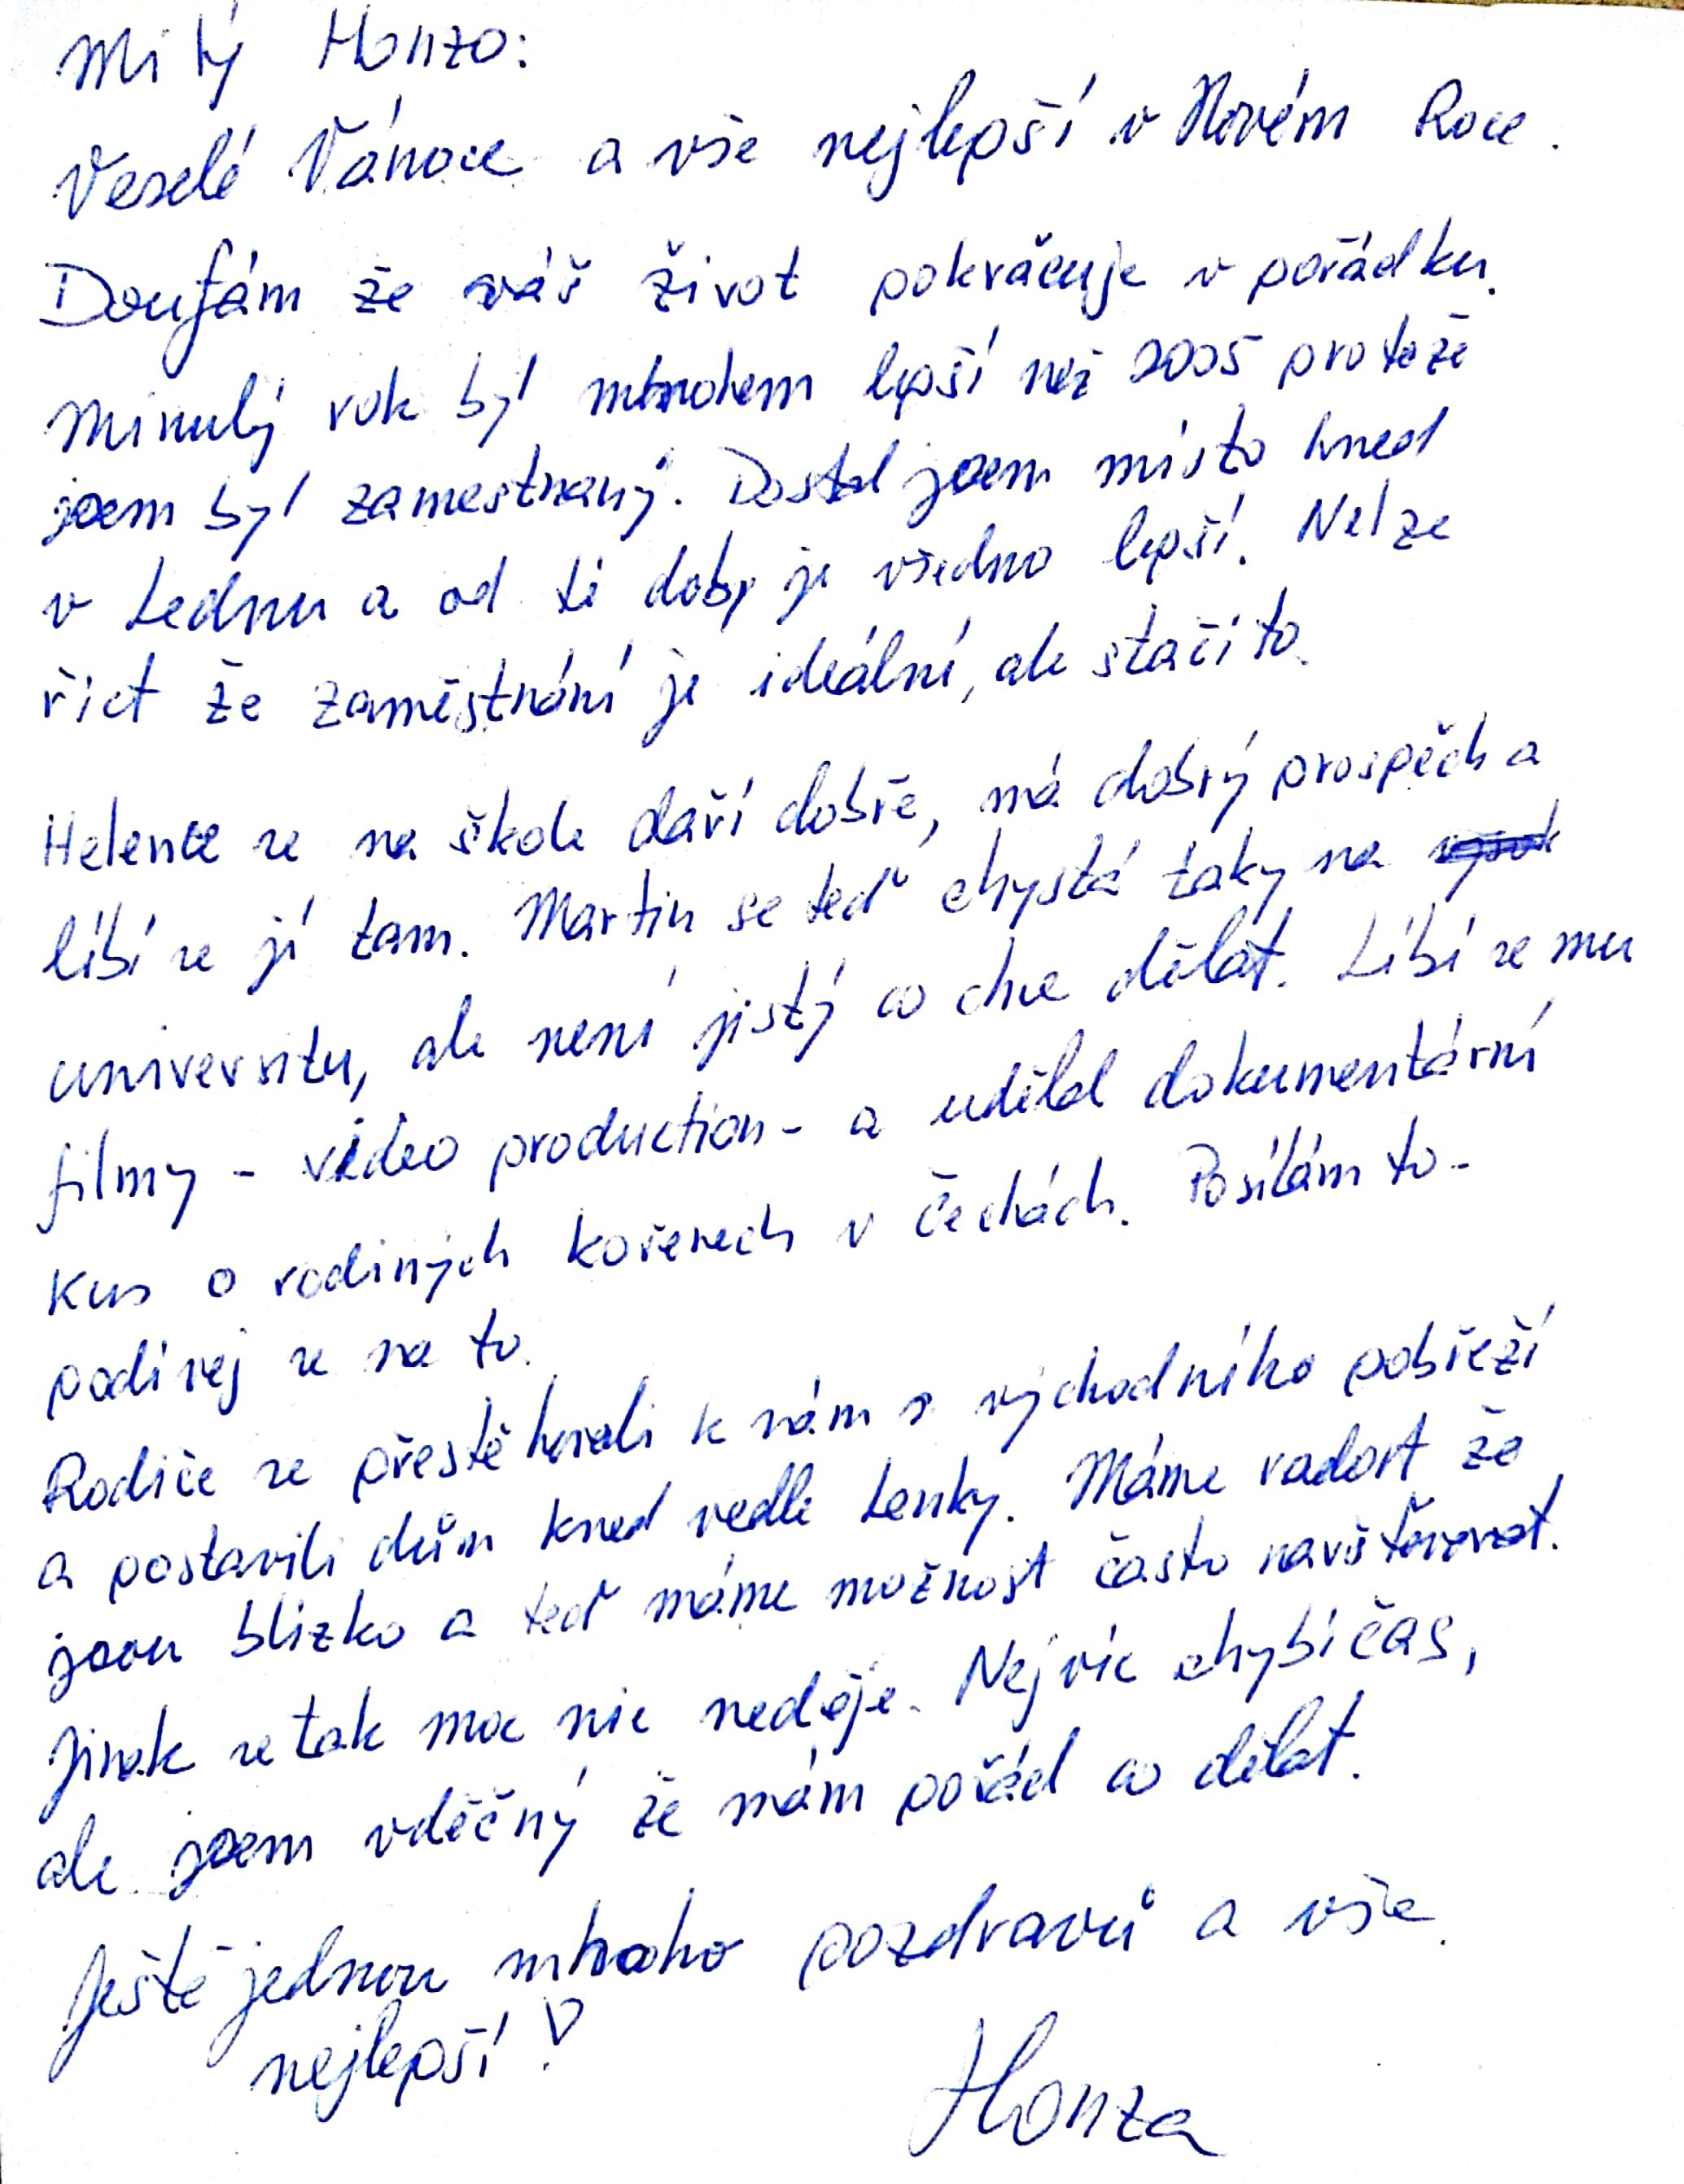 Milý Honzo:
Veselé Vánoce a vše nejlepší v Novém Roce.
Doufám že váš život pokračuje v pořádku.
Minulý rok byl mnohem lepší než 2005 protože
jsem byl zamestnaný. Dostal jsem místo hned
v Lednu a od té doby je všedno lepší. Nelze
řict že zaměstnání je ideální, ale stačí to.
Helence se na škole daří dobře, má dobrý prospěch a
líbí se jí tam. Martin se teď chystá taky na
universitu, ale není jistý co chce dělat. Líbí se mu
filmy - video production - a udělal dokumentární
kus o rodiných kořenech v Čechách. Posílám to -
podívej se na to.
Rodiče se přestěhovali k nám s východního pobřeží
a postavili dům hned vedle Lenky. Máme radost že
jsou blízko a teď máme možnost často navštěvovat.
Jinak se tak moc nic neděje. Nejvíc chybí čas,
ale jsem vděčný že mám pořád co dělat.
Ještě jednou mnoho pozdravů a vše
nejlepší!
Honza